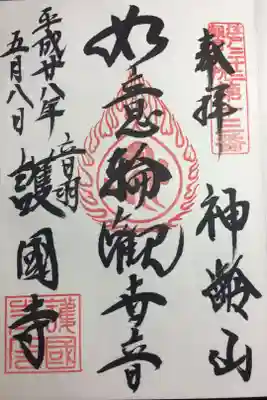 奉拝
神齢山
如意輪観世音
平成廿八年
五月八日
音羽
護國寺